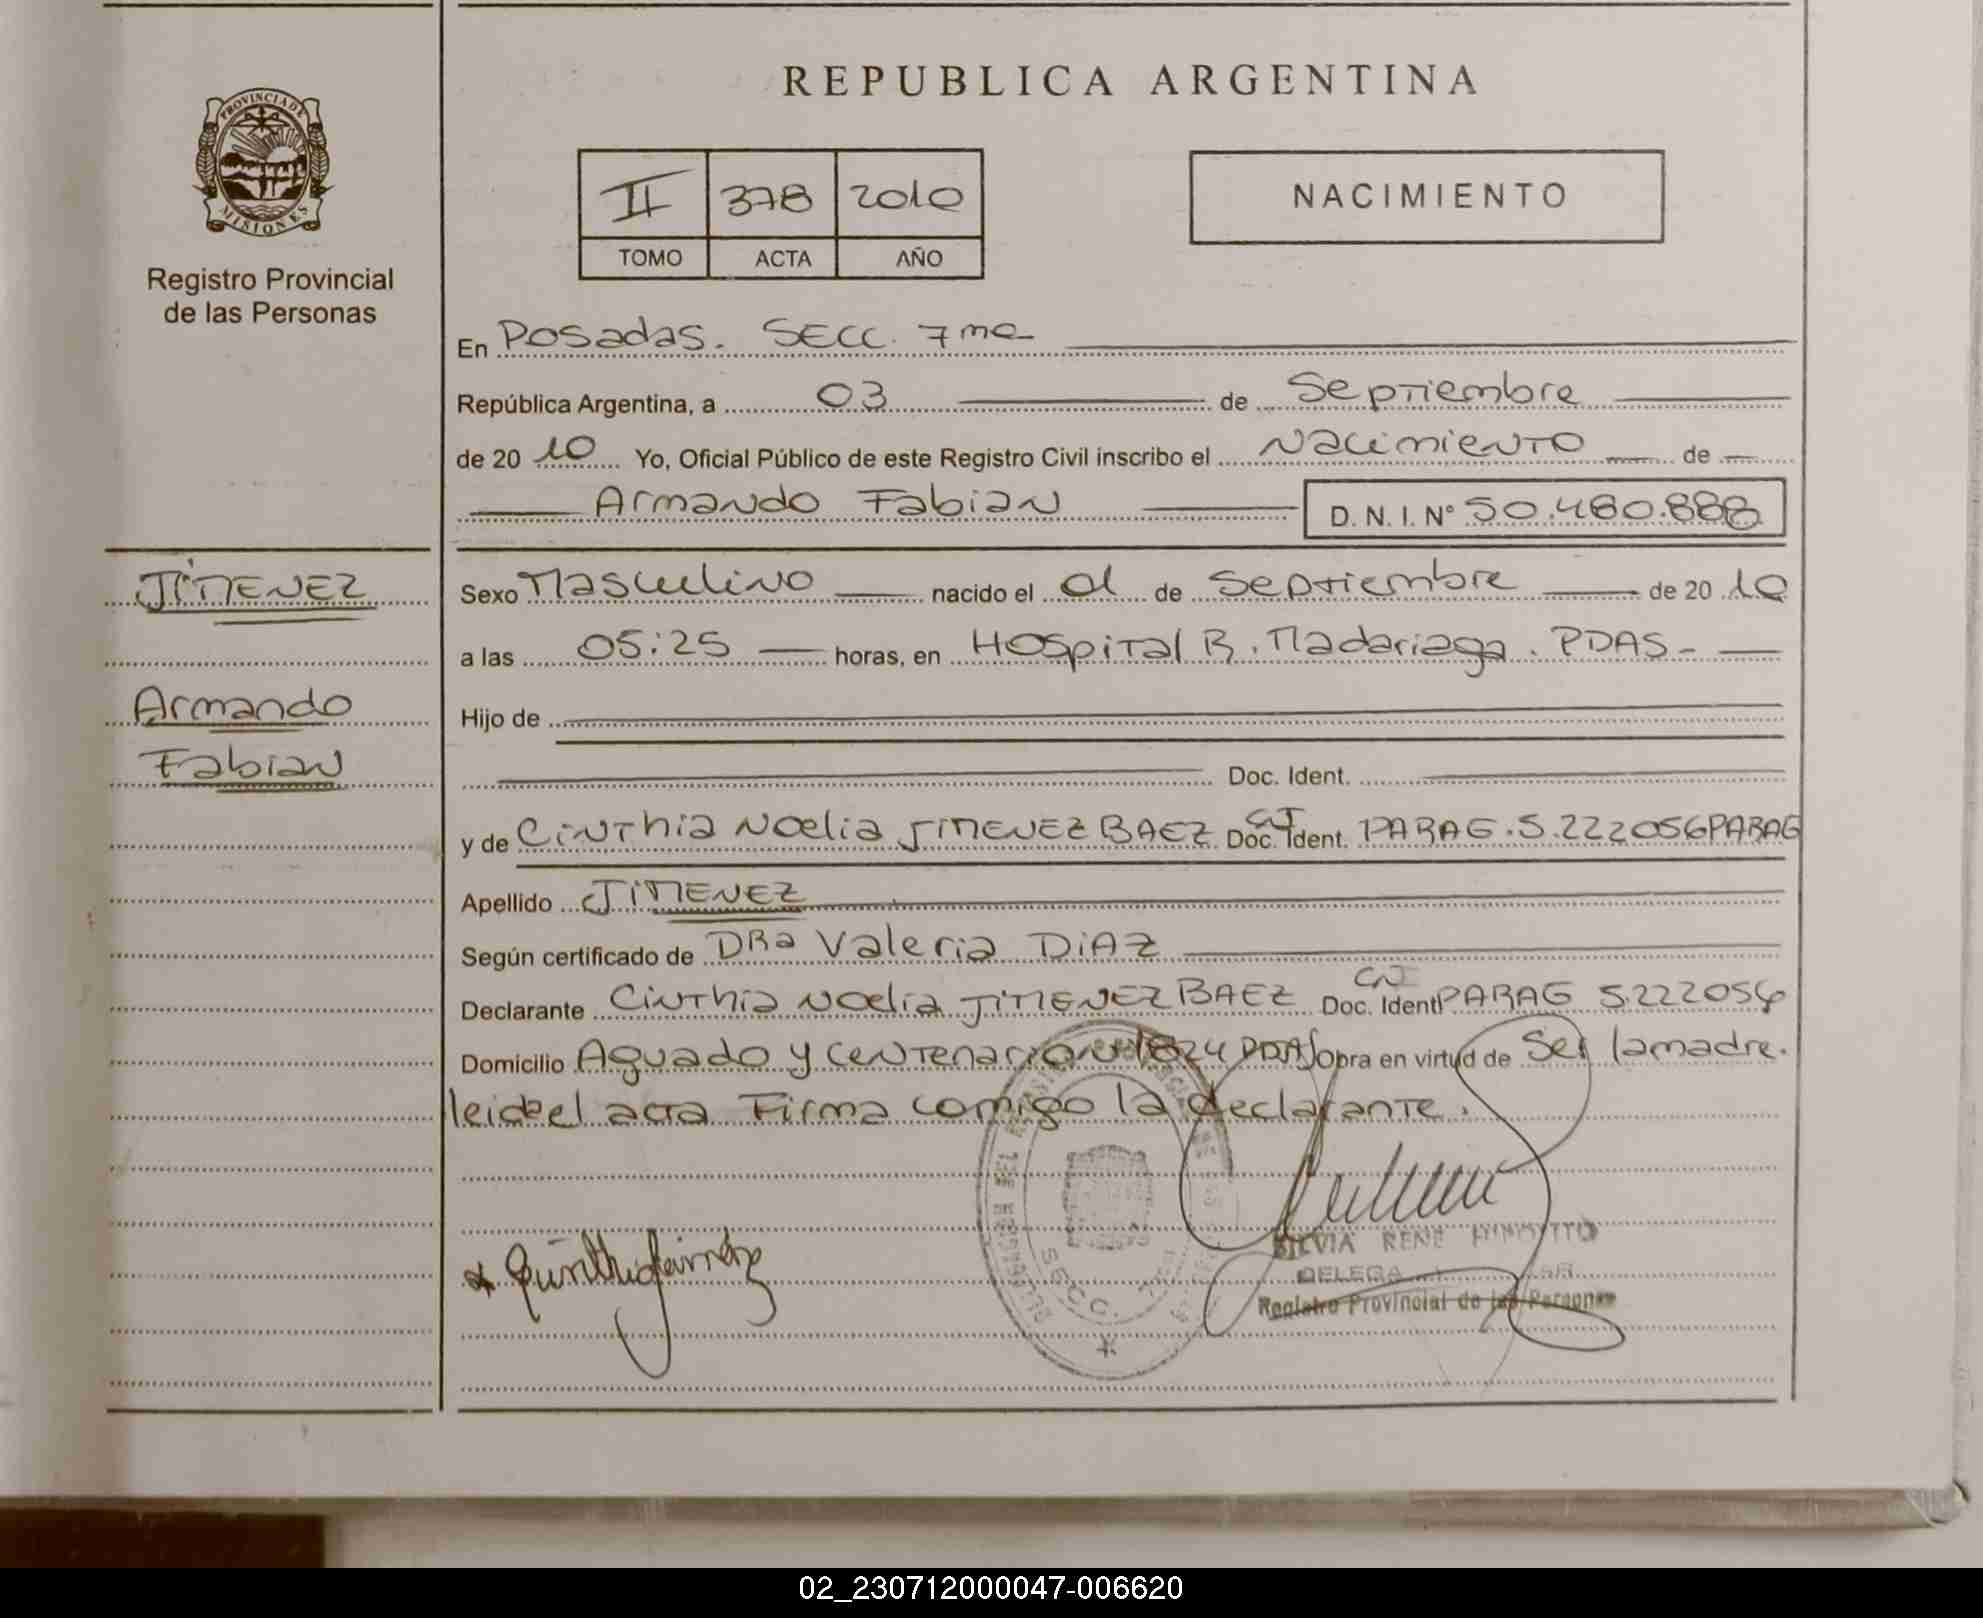 PROVINCIA DE
MISIONES
Registro Provincial
de las Personas
REPUBLICA ARGENTINA
II 378 2010
TOMO ACTA AÑO
NACIMIENTO
En Posadas. SECC. 7ma
República Argentina, a 03 de Septiembre
de 20 10 Yo, Oficial Público de este Registro Civil inscribo el Nacimiento de
Armando Fabian D. N. I. N° 50.480.888
JIMENEZ
Armando
Fabian
Sexo Masculino nacido el 01 de Septiembre de 20 10
a las 05:25 horas, en Hospital R. Madariaga. PDAS-
Hijo de
Doc. Ident.
y de Cinthia Noelia JIMENEZ BAEZ Doc. Ident. CI PARAG. 5.222056 PARAG
Apellido JIMENEZ
Según certificado de DRa Valeria DIAZ
Declarante Cinthia Noelia JIMENEZ BAEZ Doc. Ident CI PARAG 5.222056
Domicilio Aguado y Centenario N 1824 PDAS obra en virtud de Ser la madre.
leida el acta Firma comigo la declarante.
SECC.
SILVIA RENE HIPOLITO
DELEGA
Registro Provincial de las Personas
02_230712000047-006620